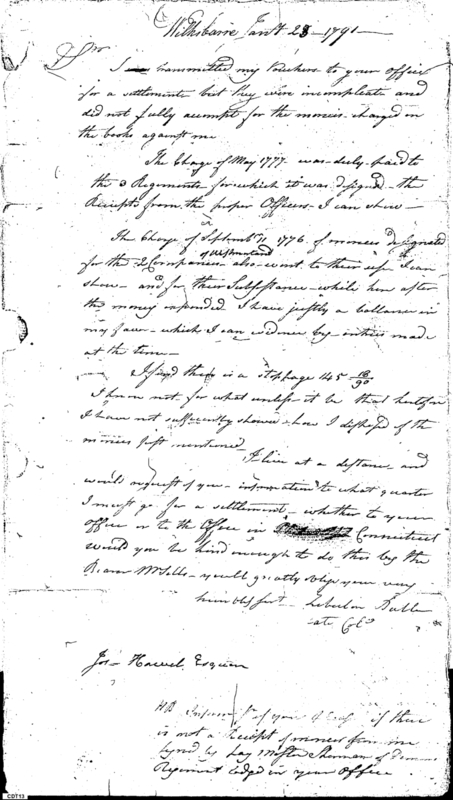 Wilksbarre Jany 28 - 1791 -
D Sir
I transmitted my Vouchers to your Office
for a settlement but they were incompleate and
did not fully account for the monies charged on
the books against me
The Charge of May 1777 was duly paid to
the 3 Regiments for which it was designd - the
Receipts from the proper Officers I can show -
The Charge of Septembr 11 1776 of monies designated
for the 2 Companies of Westmorland also went to their use I can
show - and for their Subsistance while here after
the money expended I have justly a ballance in
my favr - which I can evidence by entries made
at the time -
I find there is a stoppage 145 18/90
I know not for what unless it be that heretofore
I have not sufficiently shown how I disposed of the
monies just mentioned
I live at a distance and
would request of you information to what quarter
I must go for a settlement - whether to your
Office or to the Office in Connecticut
would you be kind enough to do this by the
Bearer Mr - you'll greatly oblige your very
humble sert - Zebulon Butler
late Col
Jos Howell Esquire
NB of you if there
is not a Receipt of monies from me
signd by Pay Master Sherman of
Regiment lodgd in your Office
CDT13